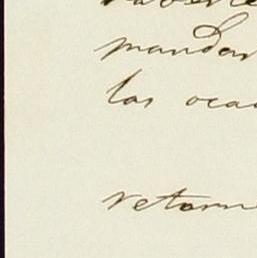 mandar
las oca
retorn